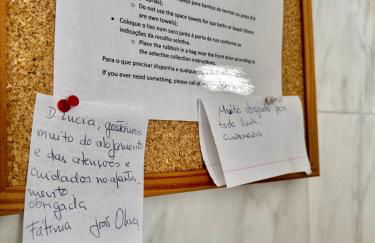 para banhos de termas ou praia (há
o Do not use the space towels for spa baths or beach (there
are own towels);
• Coloque o lixo num saco junto à porta da rua conforme as
indicações da recolha seletiva.
o Place the rubbish in a bag near the front door according to
the selective collection instructions.
Para o que precisar disponha a qualquer
If you ever need something, please call at
D. Lucia, gostamos
muito do alojamento
e das atenções e
cuidados no aparta-
mento
obrigada
Fátima José
Muito obrigado por
todo